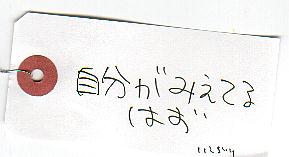 自分がみえてる
はず